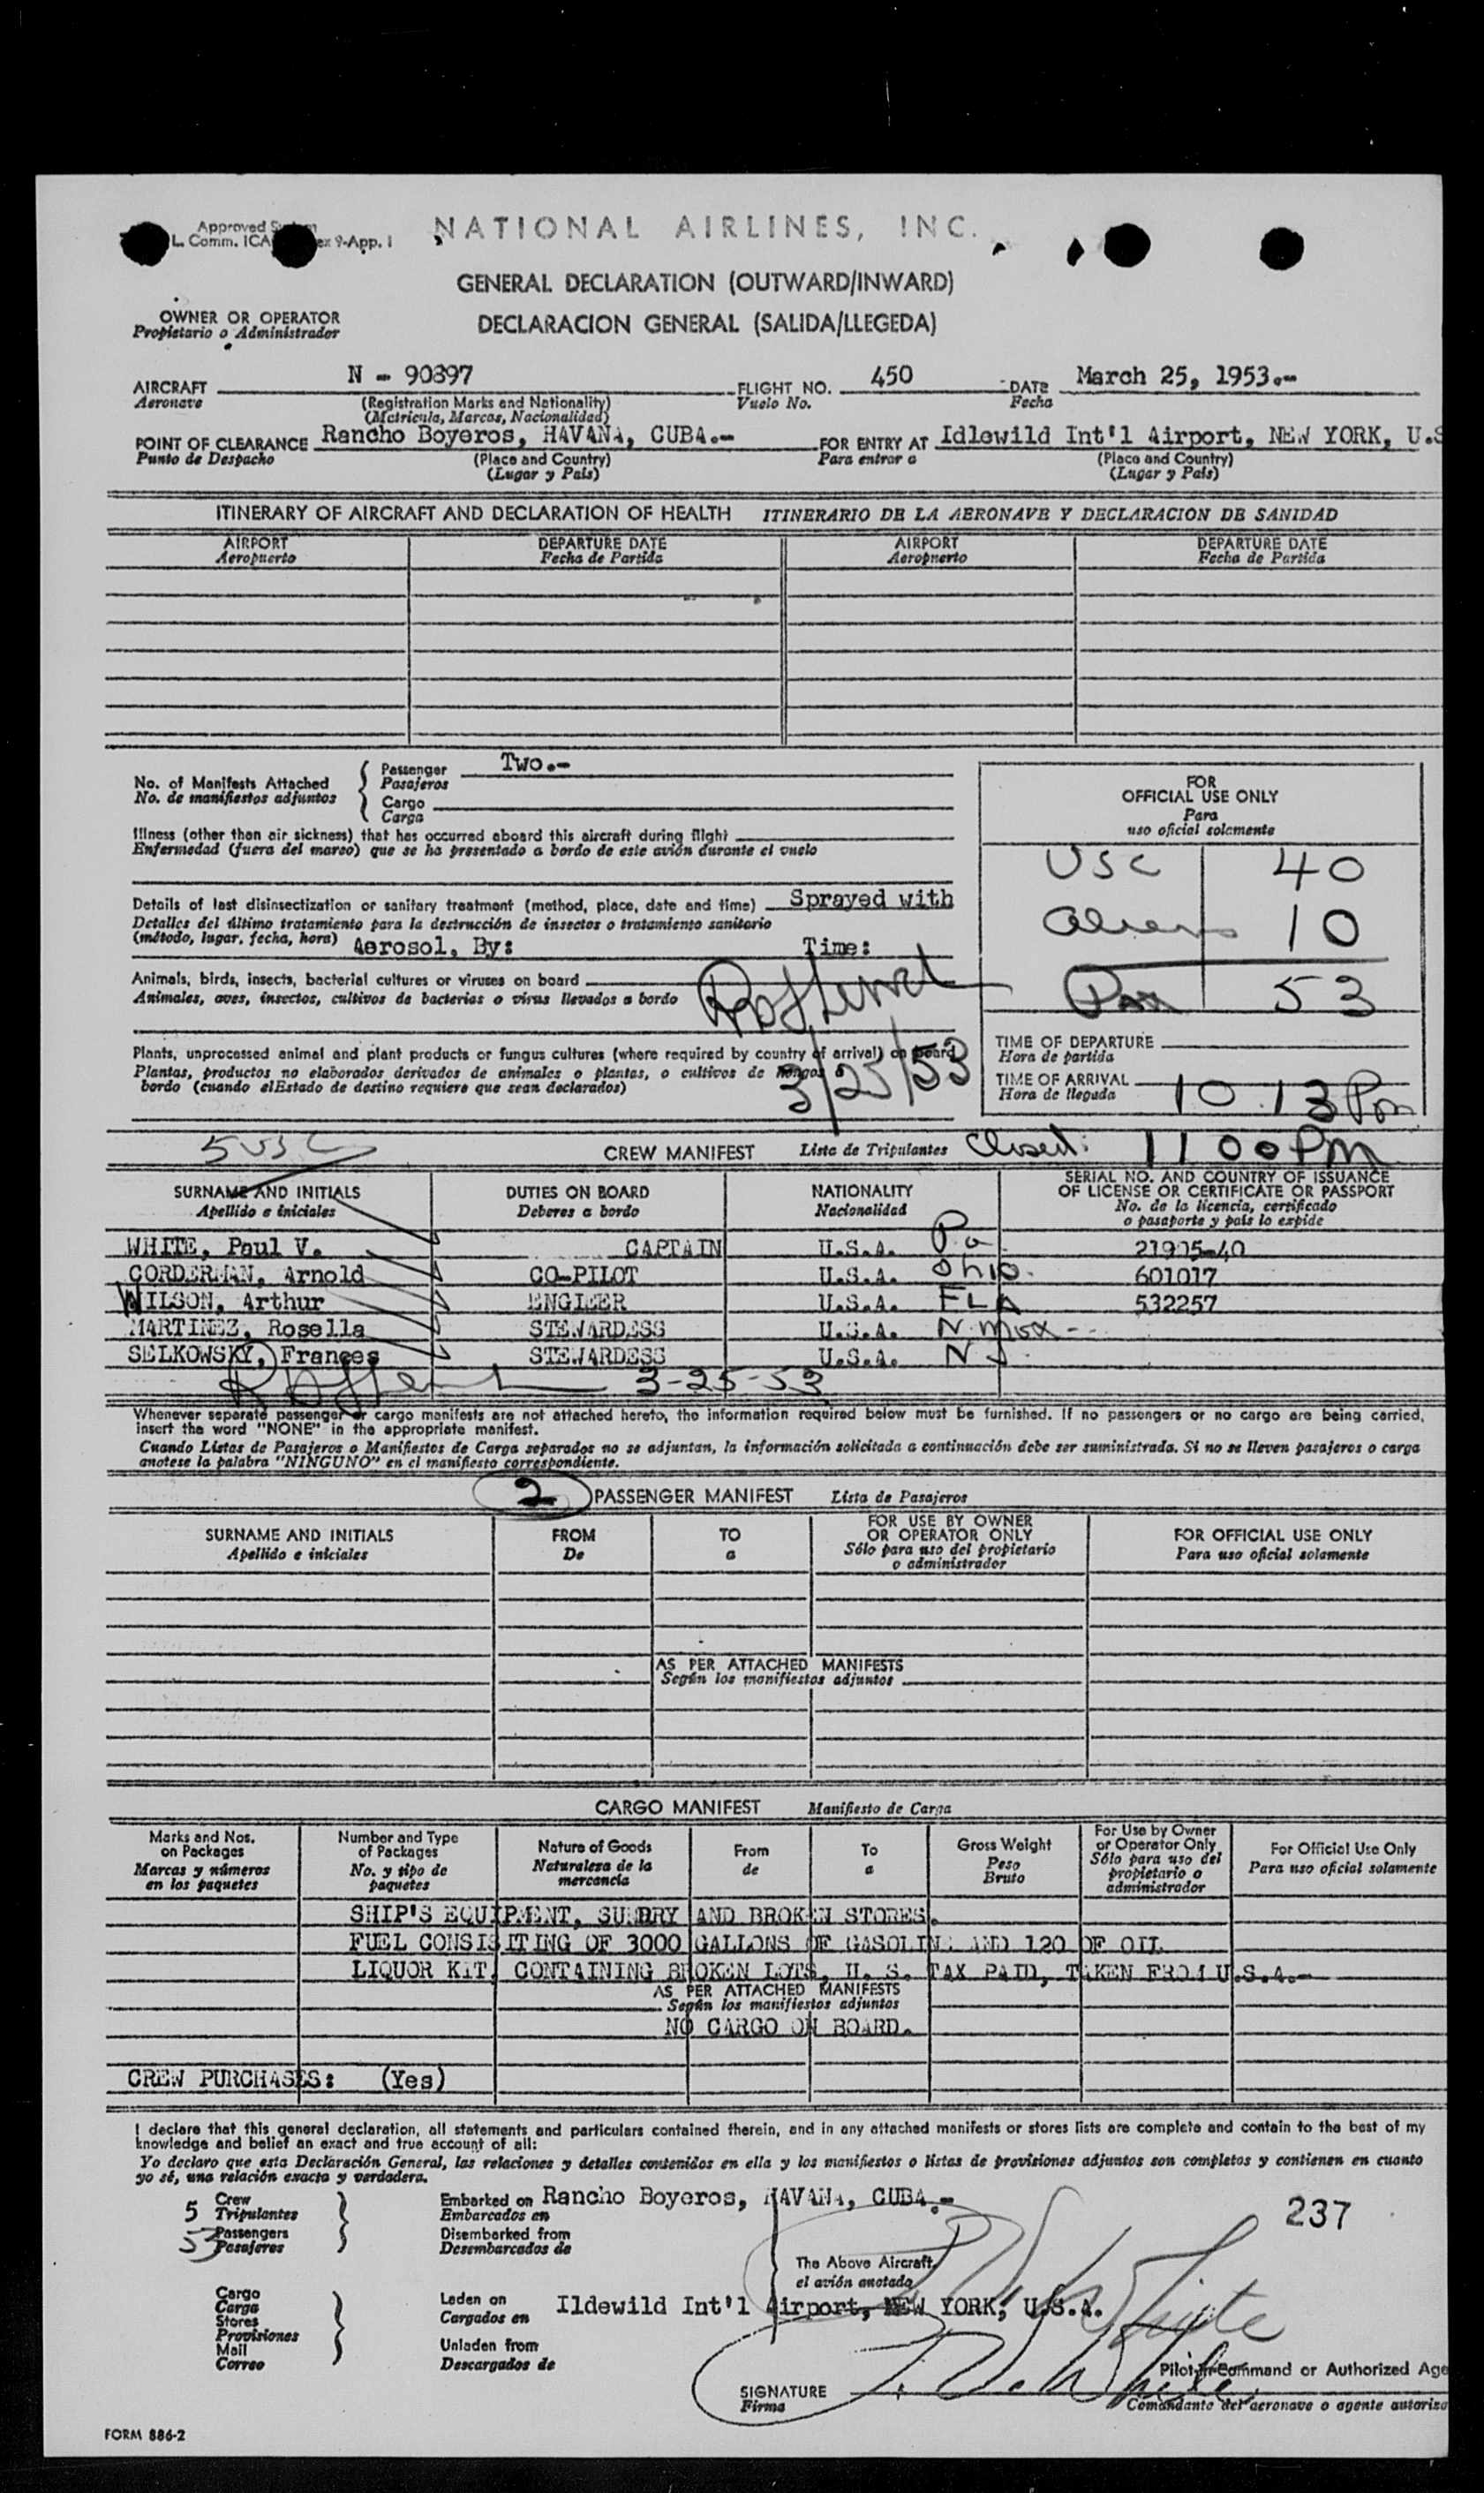 Approved
L. Comm. ICA ex 9-App. I
NATIONAL AIRLINES, INC.
GENERAL DECLARATION (OUTWARD/INWARD)
DECLARACION GENERAL (SALIDA/LLEGEDA)
OWNER OR OPERATOR
Propietario o Administrador
AIRCRAFT N - 90897 FLIGHT NO. 450 DATE March 25, 1953.-
Aeronave (Registration Marks and Nationality) Vuelo No. Fecha
(Matricula, Marcas, Nacionalidad)
POINT OF CLEARANCE Rancho Boyeros, HAVANA, CUBA.- FOR ENTRY AT Idlewild Int'l Airport, NEW YORK, U.S
Punto de Despacho (Place and Country) Para entrar a (Place and Country)
(Lugar y País) (Lugar y País)
ITINERARY OF AIRCRAFT AND DECLARATION OF HEALTH ITINERARIO DE LA AERONAVE Y DECLARACION DE SANIDAD
AIRPORT DEPARTURE DATE AIRPORT DEPARTURE DATE
Aeropuerto Fecha de Partida Aeropuerto Fecha de Partida
No. of Manifests Attached
No. de manifiestos adjuntos
Passenger Two.-
Pasajeros
Cargo
Carga
Illness (other than air sickness) that has occurred aboard this aircraft during flight
Enfermedad (fuera del mareo) que se ha presentado a bordo de este avión durante el vuelo
Details of last disinsectization or sanitary treatment (method, place, date and time) Sprayed with
Detalles del último tratamiento para la destrucción de insectos o tratamiento sanitario
(método, lugar, fecha, hora) Aerosol, By: Time:
Animals, birds, insects, bacterial cultures or viruses on board
Animales, aves, insectos, cultivos de bacterias o virus llevados a bordo
Plants, unprocessed animal and plant products or fungus cultures (where required by country of arrival) on board
Plantas, productos no elaborados derivados de animales o plantas, o cultivos de hongos a
bordo (cuando elEstado de destino requiere que sean declarados)
3/25/53
FOR
OFFICIAL USE ONLY
Para
uso oficial solamente
USC 40
Aliens 10
Pax 53
TIME OF DEPARTURE
Hora de partida
TIME OF ARRIVAL 10.13 Pm
Hora de llegada
5 USC
CREW MANIFEST Lista de Tripulantes Closed: 11 00 PM
SURNAME AND INITIALS DUTIES ON BOARD NATIONALITY SERIAL NO. AND COUNTRY OF ISSUANCE
OF LICENSE OR CERTIFICATE OR PASSPORT
Apellido e iniciales Deberes a bordo Nacionalidad No. de la licencia, certificado
o pasaporte y país lo expide
WHITE, Paul V. CAPTAIN U.S.A. Pa 21905-40
CORDERMAN, Arnold CO-PILOT U.S.A. Ohio. 601017
WILSON, Arthur ENGIEER U.S.A. FLA 532257
MARTINEZ, Rosella STEWARDESS U.S.A. N. Mex -
SELKOWSKY, Frances STEWARDESS U.S.A. N J
3-25-53
Whenever separate passenger or cargo manifests are not attached hereto, the information required below must be furnished. If no passengers or no cargo are being carried,
insert the word "NONE" in the appropriate manifest.
Cuando Listas de Pasajeros o Manifiestos de Carga separados no se adjuntan, la información solicitada a continuación debe ser suministrada. Si no se lleven pasajeros o carga
anotese la palabra "NINGUNO" en el manifiesto correspondiente.
2 PASSENGER MANIFEST Lista de Pasajeros
SURNAME AND INITIALS FROM TO FOR USE BY OWNER
OR OPERATOR ONLY FOR OFFICIAL USE ONLY
Apellido e iniciales De a Sólo para uso del propietario
o administrador Para uso oficial solamente
AS PER ATTACHED MANIFESTS
Según los manifiestos adjuntos
CARGO MANIFEST Manifiesto de Carga
Marks and Nos.
on Packages
Marcas y números
en los paquetes
Number and Type
of Packages
No. y tipo de
paquetes
Nature of Goods
Naturaleza de la
mercancia
From
de
To
a
Gross Weight
Peso
Bruto
For Use by Owner
or Operator Only
Sólo para uso del
propietario o
administrador
For Official Use Only
Para uso oficial solamente
SHIP'S EQUIPMENT, SUNDRY AND BROKEN STORES.
FUEL CONSISITING OF 3000 GALLONS OF GASOLINE AND 120 OF OIL
LIQUOR KIT, CONTAINING BROKEN LOTS, U. S. TAX PAID, TAKEN FROM U.S.A.-
AS PER ATTACHED MANIFESTS
Según los manifiestos adjuntos
NO CARGO ON BOARD.
CREW PURCHASES: (Yes)
I declare that this general declaration, all statements and particulars contained therein, and in any attached manifests or stores lists are complete and contain to the best of my
knowledge and belief an exact and true account of all:
Yo declaro que esta Declaración General, las relaciones y detalles contenidos en ella y los manifiestos o listas de provisiones adjuntos son completos y contienen en cuanto
yo sé, una relación exacta y verdadera.
5 Crew
Tripulantes
53 Passengers
Pasajeros
Embarked on Rancho Boyeros, HAVANA, CUBA.-
Embarcados en
Disembarked from
Desembarcados de
237
The Above Aircraft
el avión anotado
Cargo
Carga
Stores
Provisiones
Mail
Correo
Laden on Ildewild Int'l Airport, NEW YORK, U.S.A.
Cargados en
Unladen from
Descargados de
P. V. White
Pilot-in-Command or Authorized Age
SIGNATURE P. V. White
Firma
Comandante del aeronave o agente autoriza
FORM 886-2